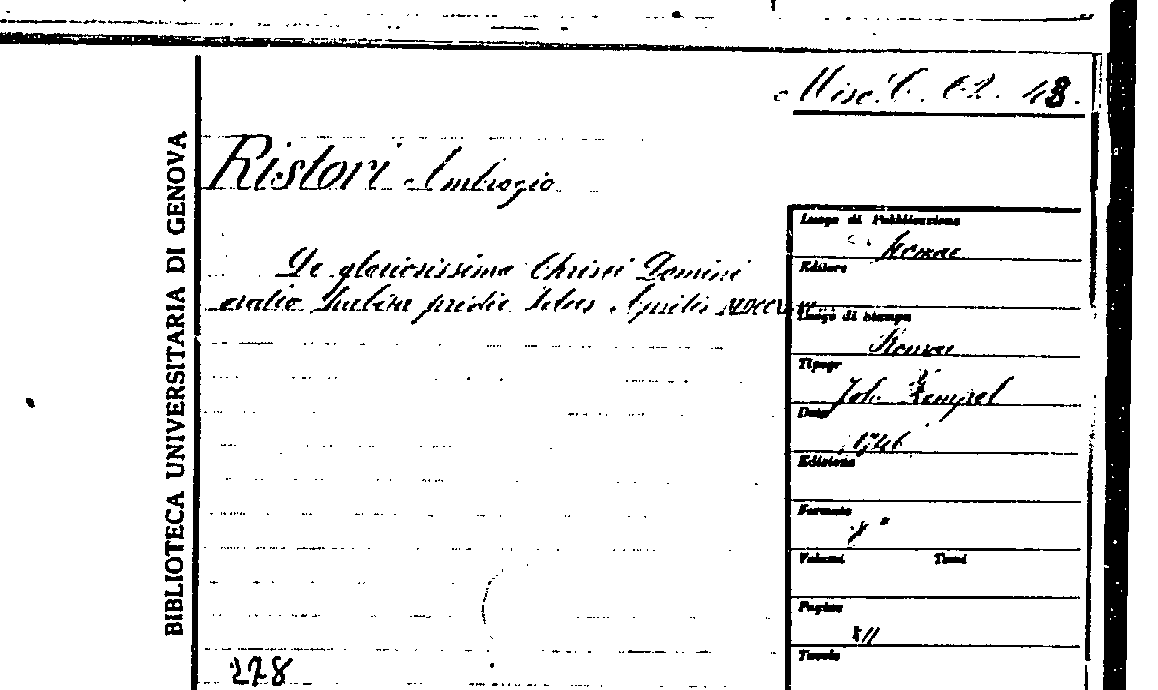 Misc. C. 62. 48.
BIBLIOTECA UNIVERSITARIA DI GENOVA
Ristori Ambrogio
De gloriosissimo Christi Domini
oratio habita pridie Idus Aprilis
Luogo di Pubblicazione
Romae
Editore
Luogo di Stampa
Romae
Tipogr
Joh.
Data
1746
Edizione
Formato
Volumi Tomi
Pagine
XII
Tavole
278